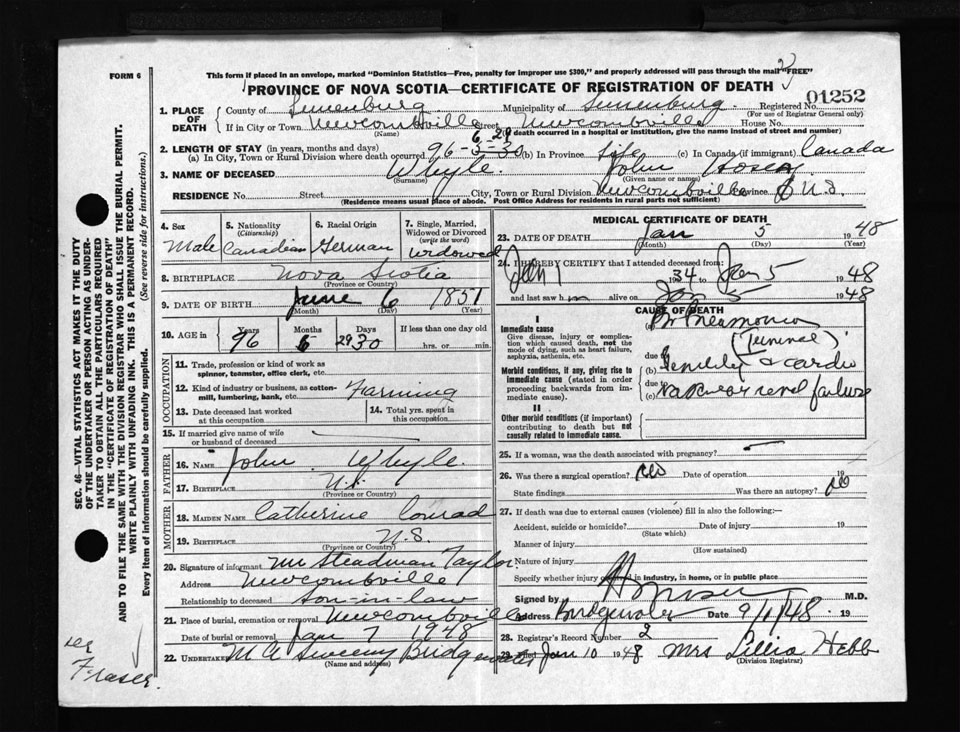 FORM 6
This form if placed in an envelope, marked "Dominion Statistics—Free, penalty for improper use $300," and properly addressed will pass through the mail "FREE"
PROVINCE OF NOVA SCOTIA—CERTIFICATE OF REGISTRATION OF DEATH
01252
1. PLACE OF DEATH
County of Lunenburg Municipality of Lunenburg Registered No.
(For use of Registrar General only)
If in City or Town Newcombville Street Newcombville House No.
(Name) (If death occurred in a hospital or institution, give the name instead of street and number)
2. LENGTH OF STAY (in years, months and days)
6 29
(a) In City, Town or Rural Division where death occurred 96-5-30 (b) In Province Life (c) In Canada (if immigrant) Canada
3. NAME OF DECEASED Whyle. John Hosea
(Surname) (Given name or names)
RESIDENCE No. Street City, Town or Rural Division Newcombville Province N.S.
(Residence means usual place of abode. Post Office Address for residents in rural parts not sufficient)
4. Sex
Male
5. Nationality
(Citizenship)
Canadian
6. Racial Origin
German
7. Single, Married, Widowed or Divorced
(write the word)
Widowed
8. BIRTHPLACE Nova Scotia
(Province or Country)
9. DATE OF BIRTH June 6 1851
(Month) (Day) (Year)
10. AGE in
Years Months Days If less than one day old
96 6 29 30 hrs. or min.
OCCUPATION
11. Trade, profession or kind of work as spinner, teamster, office clerk, etc.
12. Kind of industry or business, as cotton-mill, lumbering, bank, etc. Farming
13. Date deceased last worked at this occupation
14. Total yrs. spent in this occupation
15. If married give name of wife or husband of deceased
FATHER
16. NAME John Whyle.
17. BIRTHPLACE N.S.
(Province or Country)
MOTHER
18. MAIDEN NAME Catherine Conrad
19. BIRTHPLACE N.S.
(Province or Country)
20. Signature of informant Mr Steadman Taylor.
Address Newcombville
Relationship to deceased Son-in-law
21. Place of burial, cremation or removal Newcombville
Date of burial or removal Jan 7 1948
22. UNDERTAKER M A Sweeny Bridgewater
(Name and address)
MEDICAL CERTIFICATE OF DEATH
23. DATE OF DEATH Jan 5 1948
(Month) (Day) (Year)
24. I HEREBY CERTIFY that I attended deceased from:
Jan 1 1934 to Jan 5 1948
and last saw him alive on Jan 5 1948
CAUSE OF DEATH
I
Immediate cause
Give disease, injury or complication which caused death, not the mode of dying, such as heart failure, asphyxia, asthenia, etc.
(a) Br Pneumonia
(Terminal)
Morbid conditions, if any, giving rise to immediate cause (stated in order proceeding backwards from immediate cause).
due to
(b) Senility & cardio
due to
(c) vascular renal failure
II
Other morbid conditions (if important) contributing to death but not causally related to immediate cause.
25. If a woman, was the death associated with pregnancy?
26. Was there a surgical operation? No Date of operation 19
State findings Was there an autopsy? No
27. If death was due to external causes (violence) fill in also the following:—
Accident, suicide or homicide? Date of injury 19
(State which)
Manner of injury
(How sustained)
Nature of injury
Specify whether injury occurred in industry, in home, or in public place
Signed by M.D.
Address Bridgewater Date 9/1/48 19
28. Registrar's Record Number 2
29. Filed Jan 10 1948 Mrs Lillia Hebb
(Division Registrar)
SEC. 46—VITAL STATISTICS ACT MAKES IT THE DUTY
OF THE UNDERTAKER OR PERSON ACTING AS UNDER-
TAKER TO OBTAIN ALL THE PARTICULARS REQUIRED
IN THE "CERTIFICATE OF REGISTRATION OF DEATH"
AND TO FILE THE SAME WITH THE DIVISION REGISTRAR WHO SHALL ISSUE THE BURIAL PERMIT.
WRITE PLAINLY WITH UNFADING INK. THIS IS A PERMANENT RECORD.
Every item of information should be carefully supplied. (See reverse side for instructions.)
Fraser.